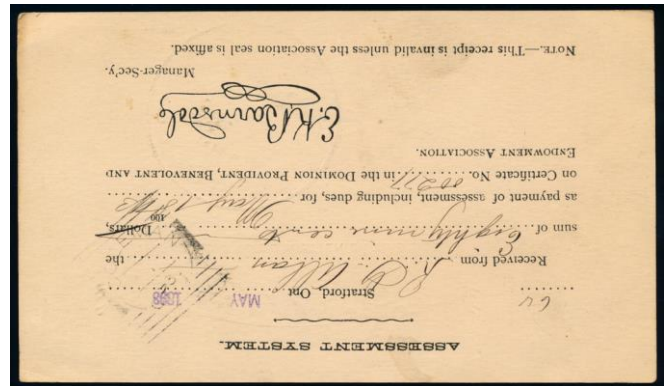 ASSESSMENT SYSTEM.
Stratford, Ont MAY 1893
Received from Allan the
sum of Eighty nine cents Dollars,
100
as payment of assessment, including dues, for May
on Certificate No. in the DOMINION PROVIDENT, BENEVOLENT AND
ENDOWMENT ASSOCIATION.
E.K. Barnsdale
Manager-Sec'y.
NOTE.—This receipt is invalid unless the Association seal is affixed.